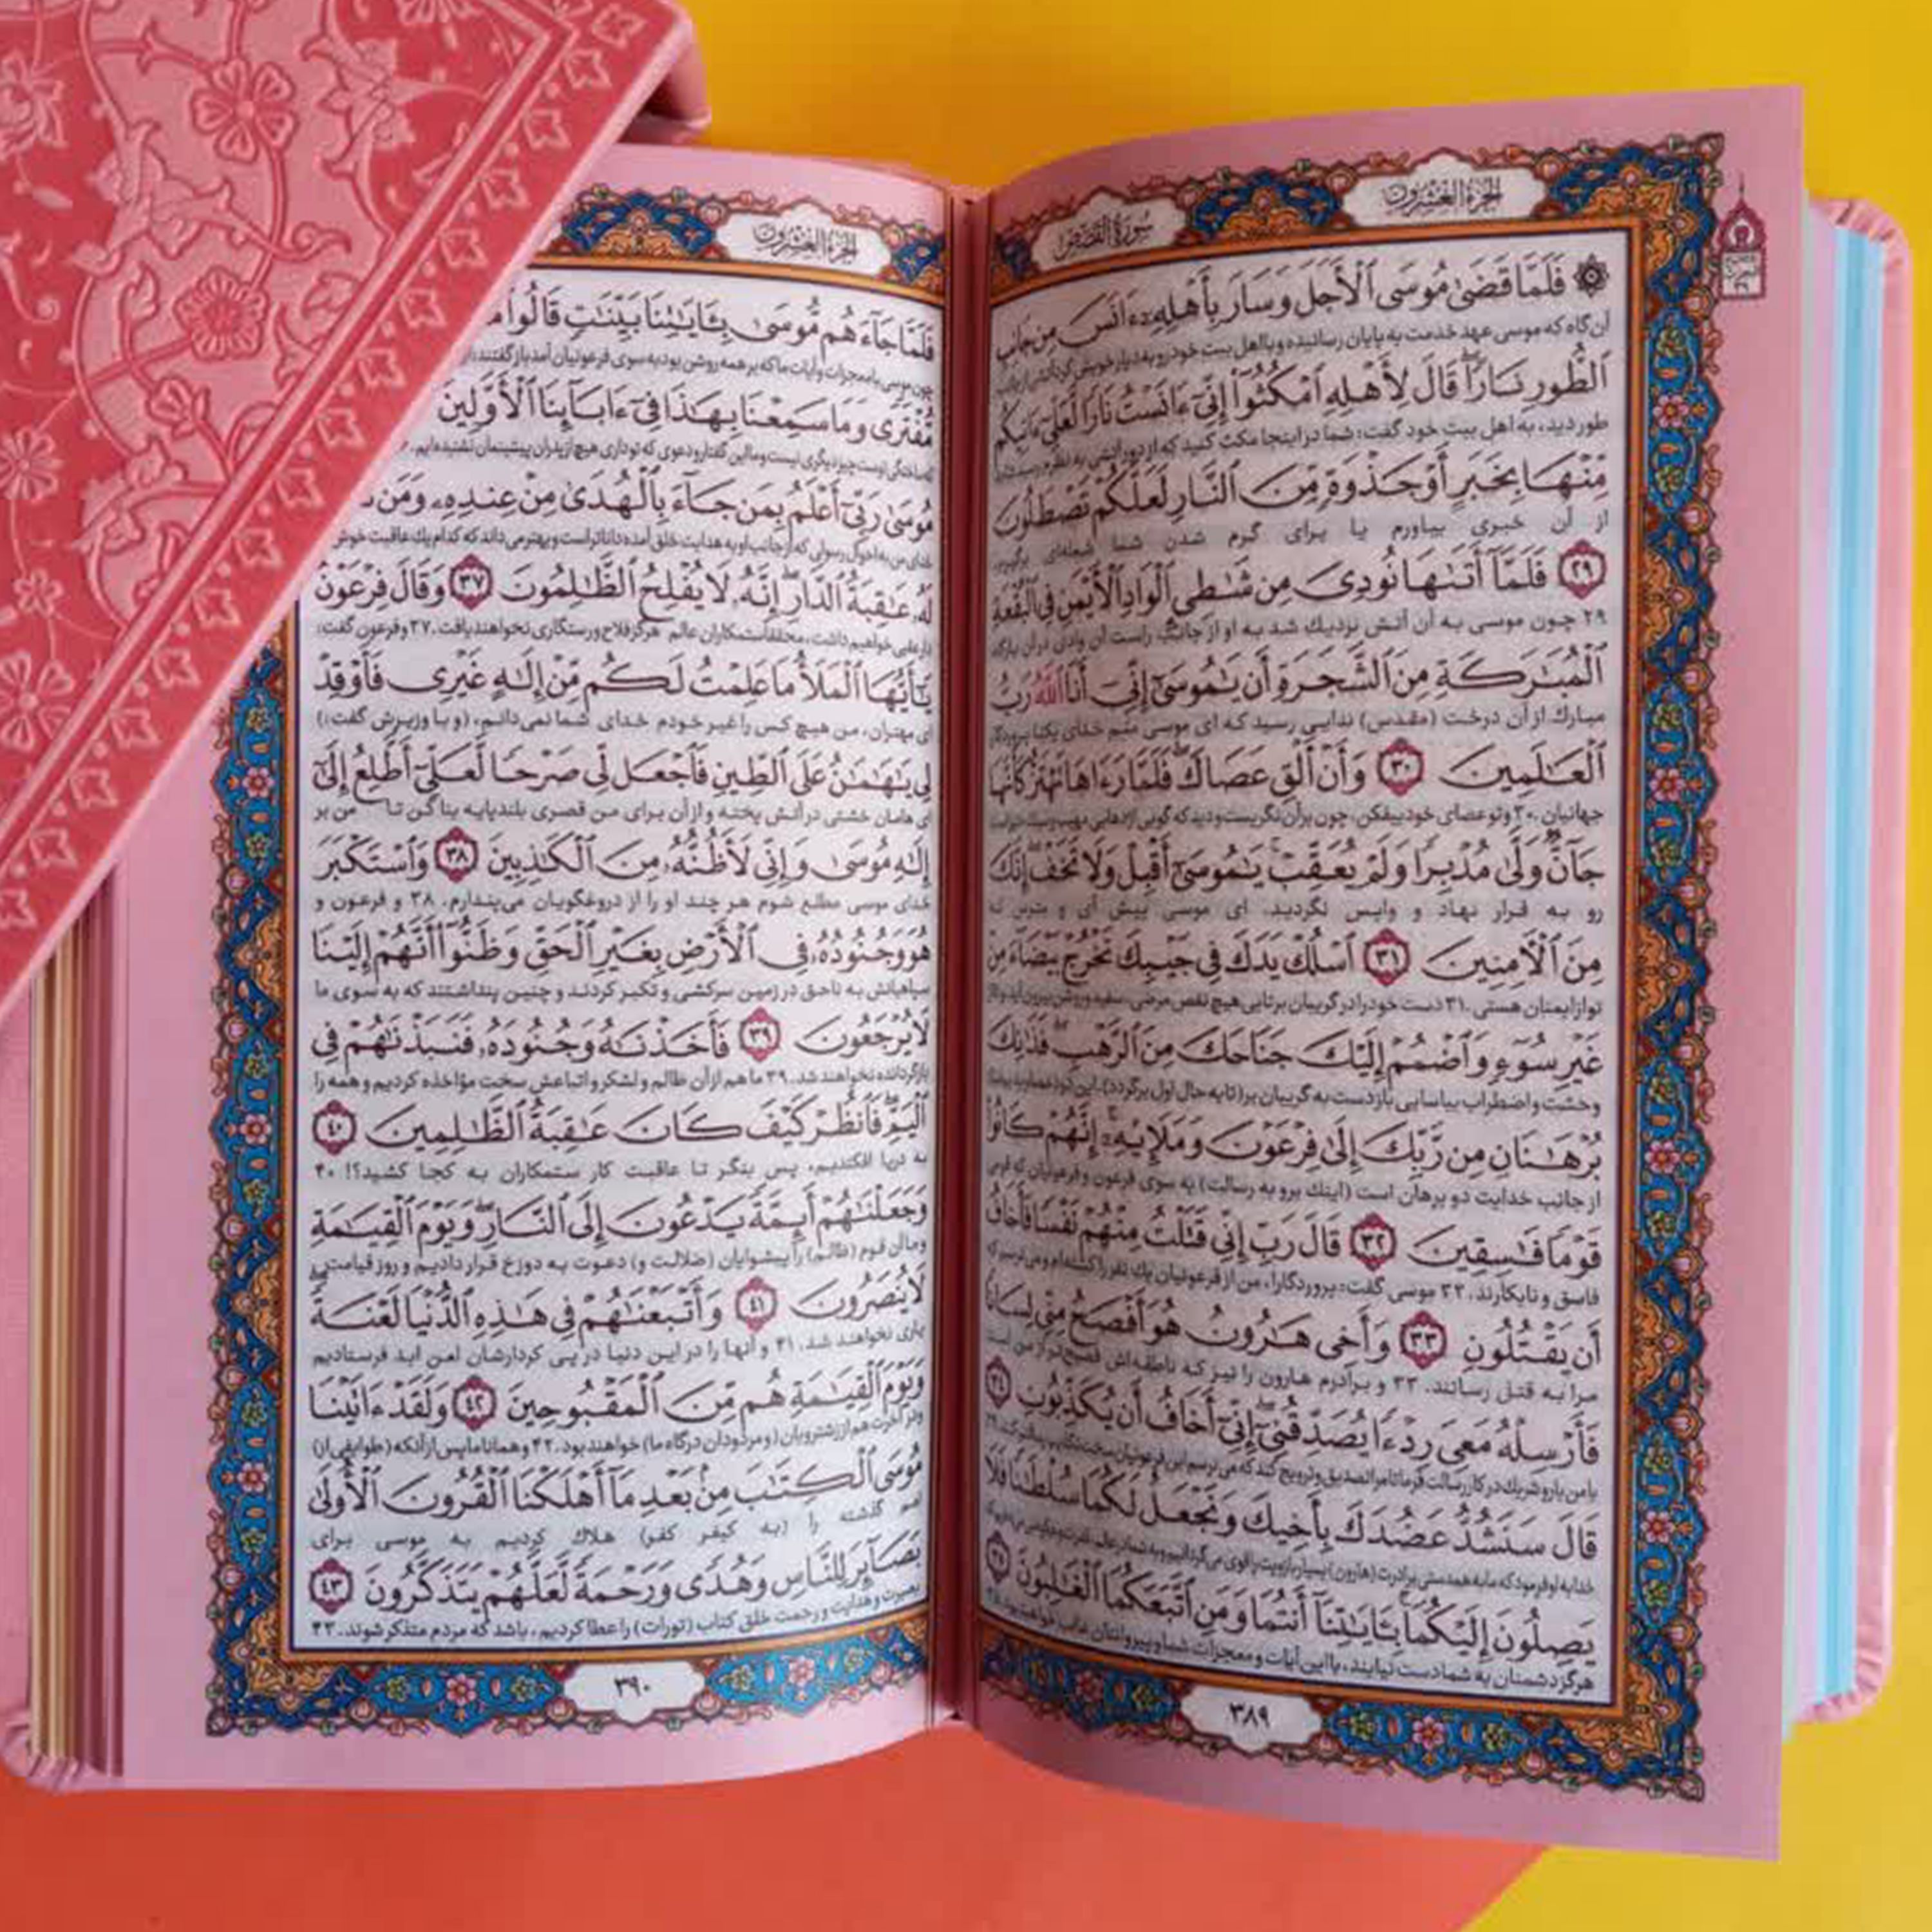 الجزء العشرون
سورة القصص
فَلَمَّا قَضَىٰ مُوسَى ٱلْأَجَلَ وَسَارَ بِأَهْلِهِۦٓ ءَانَسَ مِن جَانِبِ
آن‌گاه که موسی عهد خدمت به پایان رسانیده و با اهل بیت خود رو به دیار خویش کرد
ٱلطُّورِ نَارًا قَالَ لِأَهْلِهِ ٱمْكُثُوٓا۟ إِنِّىٓ ءَانَسْتُ نَارًا لَّعَلِّىٓ ءَاتِيكُم
طور دید، به اهل بیت خود گفت: شما در اینجا مکث کنید که از دور آتشی به نظرم رسید
مِّنْهَا بِخَبَرٍ أَوْ جَذْوَةٍ مِّنَ ٱلنَّارِ لَعَلَّكُمْ تَصْطَلُونَ
از آن خبری بیاورم یا برای گرم شدن شما شعله‌ای برگیرم.
٢٩ فَلَمَّآ أَتَىٰهَا نُودِىَ مِن شَٰطِئِ ٱلْوَادِ ٱلْأَيْمَنِ فِى ٱلْبُقْعَةِ
۲۹ چون موسی به آن آتش نزدیك شد به او از جانب راست آن وادی در آن بارگاه
ٱلْمُبَٰرَكَةِ مِنَ ٱلشَّجَرَةِ أَن يَٰمُوسَىٰٓ إِنِّىٓ أَنَا ٱللَّهُ رَبُّ
مبارك از آن درخت (مقدس) ندایی رسید که ای موسی منم خدای یکتا پروردگار
ٱلْعَٰلَمِينَ ٣٠ وَأَنْ أَلْقِ عَصَاكَ فَلَمَّا رَءَاهَا تَهْتَزُّ كَأَنَّهَا
جهانیان. ۳۰ و تو عصای خود بیفکن، چون بر آن نگریست و دید که گویی اژدهایی مهیب
جَآنٌّ وَلَّىٰ مُدْبِرًا وَلَمْ يُعَقِّبْ يَٰمُوسَىٰٓ أَقْبِلْ وَلَا تَخَفْ إِنَّكَ
رو به فرار نهاد و واپس نگردید. ای موسی پیش آی و مترس که
مِنَ ٱلْءَامِنِينَ ٣١ ٱسْلُكْ يَدَكَ فِى جَيْبِكَ تَخْرُجْ بَيْضَآءَ مِنْ
تو از ایمنان هستی. ۳۱ دست خود را در گریبان بر تا بی هیچ نقص مرضی، سفید و روشن بیرون آید
غَيْرِ سُوٓءٍ وَٱضْمُمْ إِلَيْكَ جَنَاحَكَ مِنَ ٱلرَّهْبِ فَذَٰنِكَ
وحشت و اضطراب بیاسایی باز دست به گریبان بر (تا به حال اول برگردد)،
بُرْهَٰنَانِ مِن رَّبِّكَ إِلَىٰ فِرْعَوْنَ وَمَلَإِيْهِۦٓ إِنَّهُمْ كَانُوا۟
از جانب خدایت دو برهان است (اینك برو به رسالت) به سوی فرعون و فرعونیان که قومی
قَوْمًا فَٰسِقِينَ ٣٢ قَالَ رَبِّ إِنِّى قَتَلْتُ مِنْهُمْ نَفْسًا فَأَخَافُ
فاسق و نابکارند. ۳۲ موسی گفت: پروردگارا، من از فرعونیان یك نفر را کشته‌ام و می‌ترسم که
أَن يَقْتُلُونِ ٣٣ وَأَخِى هَٰرُونُ هُوَ أَفْصَحُ مِنِّى لِسَانًا
مرا به قتل رسانند. ۳۳ و برادرم هارون را نیز که ناطقه‌اش فصیح‌تر از من است
فَأَرْسِلْهُ مَعِىَ رِدْءًا يُصَدِّقُنِىٓ إِنِّىٓ أَخَافُ أَن يُكَذِّبُونِ ٣٤
با من یار و شریك در کار رسالت فرما تا مرا تصدیق و ترویج کند که می‌ترسم این فرعونیان
قَالَ سَنَشُدُّ عَضُدَكَ بِأَخِيكَ وَنَجْعَلُ لَكُمَا سُلْطَٰنًا فَلَا
خدا به او فرمود که ما به همدستی برادرت (هارون) بسیار بازویت را قوی می‌گردانیم و به شما در عالم
يَصِلُونَ إِلَيْكُمَا بِـَٔايَٰتِنَآ أَنتُمَا وَمَنِ ٱتَّبَعَكُمَا ٱلْغَٰلِبُونَ ٣٥
هرگز دشمنان به شما دست نیابند، با این آیات و معجزات شما و پیروانتان
٣٨٩
الجزء العشرون
فَلَمَّا جَآءَهُم مُّوسَىٰ بِـَٔايَٰتِنَا بَيِّنَٰتٍ قَالُوا۟
چون موسی با معجزات و آیات ما که بر همه روشن بود به سوی فرعونیان آمد باز گفتند:
مُّفْتَرًى وَمَا سَمِعْنَا بِهَٰذَا فِىٓ ءَابَآئِنَا ٱلْأَوَّلِينَ
چیز دیگری نیست و ما این گفتار و دعوی که تو داری هیچ از پدران پیشینمان نشنیده‌ایم.
مُوسَىٰ رَبِّىٓ أَعْلَمُ بِمَن جَآءَ بِٱلْهُدَىٰ مِنْ عِندِهِۦ وَمَن
خدای من به احوال رسولی که از جانب او به هدایت خلق آمده داناتر است و بهتر می‌داند که کدام یك عاقبت خوش
لَهُۥ عَٰقِبَةُ ٱلدَّارِ إِنَّهُۥ لَا يُفْلِحُ ٱلظَّٰلِمُونَ ٣٧ وَقَالَ فِرْعَوْنُ
دار عقبی خواهیم داشت، محققا ستمکاران عالم هرگز فلاح و رستگاری نخواهند یافت. ۳۷ و فرعون گفت:
يَٰٓأَيُّهَا ٱلْمَلَأُ مَا عَلِمْتُ لَكُم مِّنْ إِلَٰهٍ غَيْرِى فَأَوْقِدْ
ای مهتران، من هیچ کس را غیر خودم خدای شما نمی‌دانم، (و با وزیرش گفت:)
لِى يَٰهَٰمَٰنُ عَلَى ٱلطِّينِ فَٱجْعَل لِّى صَرْحًا لَّعَلِّىٓ أَطَّلِعُ إِلَىٰٓ
ای هامان خشتی در آتش پخته و از آن برای من قصری بلندپایه بنا کن تا من بر
إِلَٰهِ مُوسَىٰ وَإِنِّى لَأَظُنُّهُۥ مِنَ ٱلْكَٰذِبِينَ ٣٨ وَٱسْتَكْبَرَ
خدای موسی مطلع شوم هر چند او را از دروغگویان می‌پندارم. ۳۸ و فرعون و
هُوَ وَجُنُودُهُۥ فِى ٱلْأَرْضِ بِغَيْرِ ٱلْحَقِّ وَظَنُّوٓا۟ أَنَّهُمْ إِلَيْنَا
سپاهیانش به ناحق در زمین سرکشی و تکبر کردند و چنین پنداشتند که به سوی ما
لَا يُرْجَعُونَ ٣٩ فَأَخَذْنَٰهُ وَجُنُودَهُۥ فَنَبَذْنَٰهُمْ فِى
بازگردانده نخواهند شد. ۳۹ ما هم از آن ظالم و لشکر و اتباعش سخت مؤاخذه کردیم و همه را
ٱلْيَمِّ فَٱنظُرْ كَيْفَ كَانَ عَٰقِبَةُ ٱلظَّٰلِمِينَ ٤٠
به دریا افکندیم، پس بنگر تا عاقبت کار ستمکاران به کجا کشید؟! ۴۰
وَجَعَلْنَٰهُمْ أَئِمَّةً يَدْعُونَ إِلَى ٱلنَّارِ وَيَوْمَ ٱلْقِيَٰمَةِ
و ما آن قوم (ظالم) را پیشوایان (ضلالت و) دعوت به دوزخ قرار دادیم و روز قیامت
لَا يُنصَرُونَ ٤١ وَأَتْبَعْنَٰهُمْ فِى هَٰذِهِ ٱلدُّنْيَا لَعْنَةً
یاری نخواهند شد. ۴۱ و آنها را در این دنیا در پی کردارشان لعن ابد فرستادیم
وَيَوْمَ ٱلْقِيَٰمَةِ هُم مِّنَ ٱلْمَقْبُوحِينَ ٤٢ وَلَقَدْ ءَاتَيْنَا
و در آخرت هم از زشترویان (و مردودان درگاه ما) خواهند بود. ۴۲ و همانا ما پس از آنکه (طوایفی از)
مُوسَى ٱلْكِتَٰبَ مِنۢ بَعْدِ مَآ أَهْلَكْنَا ٱلْقُرُونَ ٱلْأُولَىٰ
امم گذشته را (به کیفر کفر) هلاك کردیم به موسی برای
بَصَآئِرَ لِلنَّاسِ وَهُدًى وَرَحْمَةً لَّعَلَّهُمْ يَتَذَكَّرُونَ ٤٣
بصیرت و هدایت و رحمت خلق کتاب (تورات) را عطا کردیم، باشد که مردم متذکر شوند. ۴۳
٣٩٠